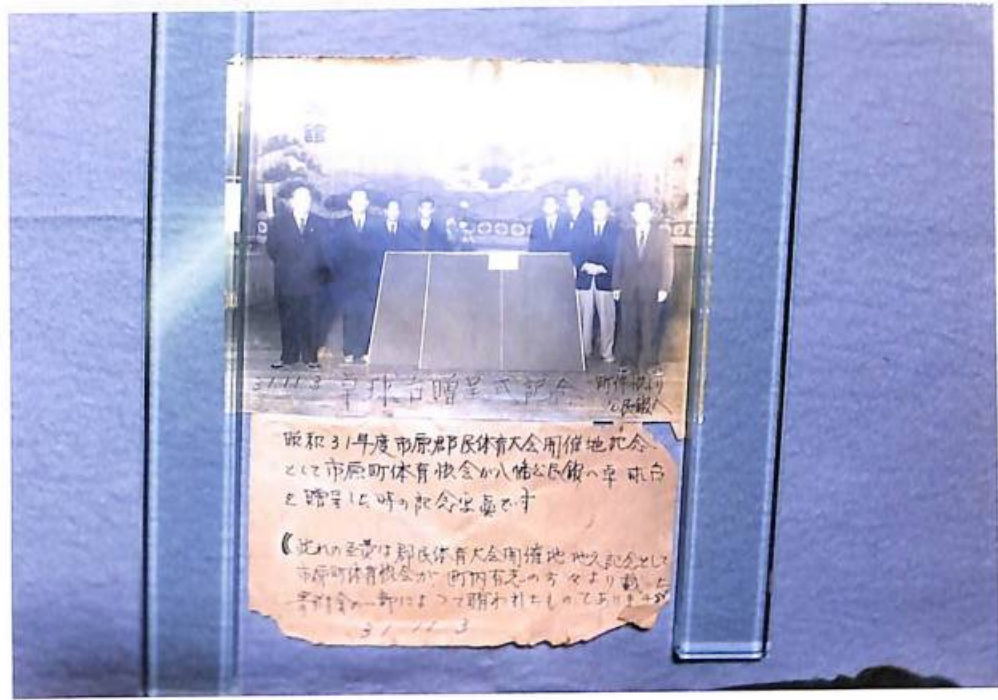 館
31.11.3 卓球台贈呈式記念 町体協より
公民館へ
昭和31年度市原郡民体育大会開催地記念
として市原町体育協会が八幡公民館へ卓球台
を贈呈した時の記念写真です
此れの は郡民体育大会開催地 記念として
市原町体育協会が町内有志の方々より戴いた
寄附金の一部によって購われたものであります
31 11 3